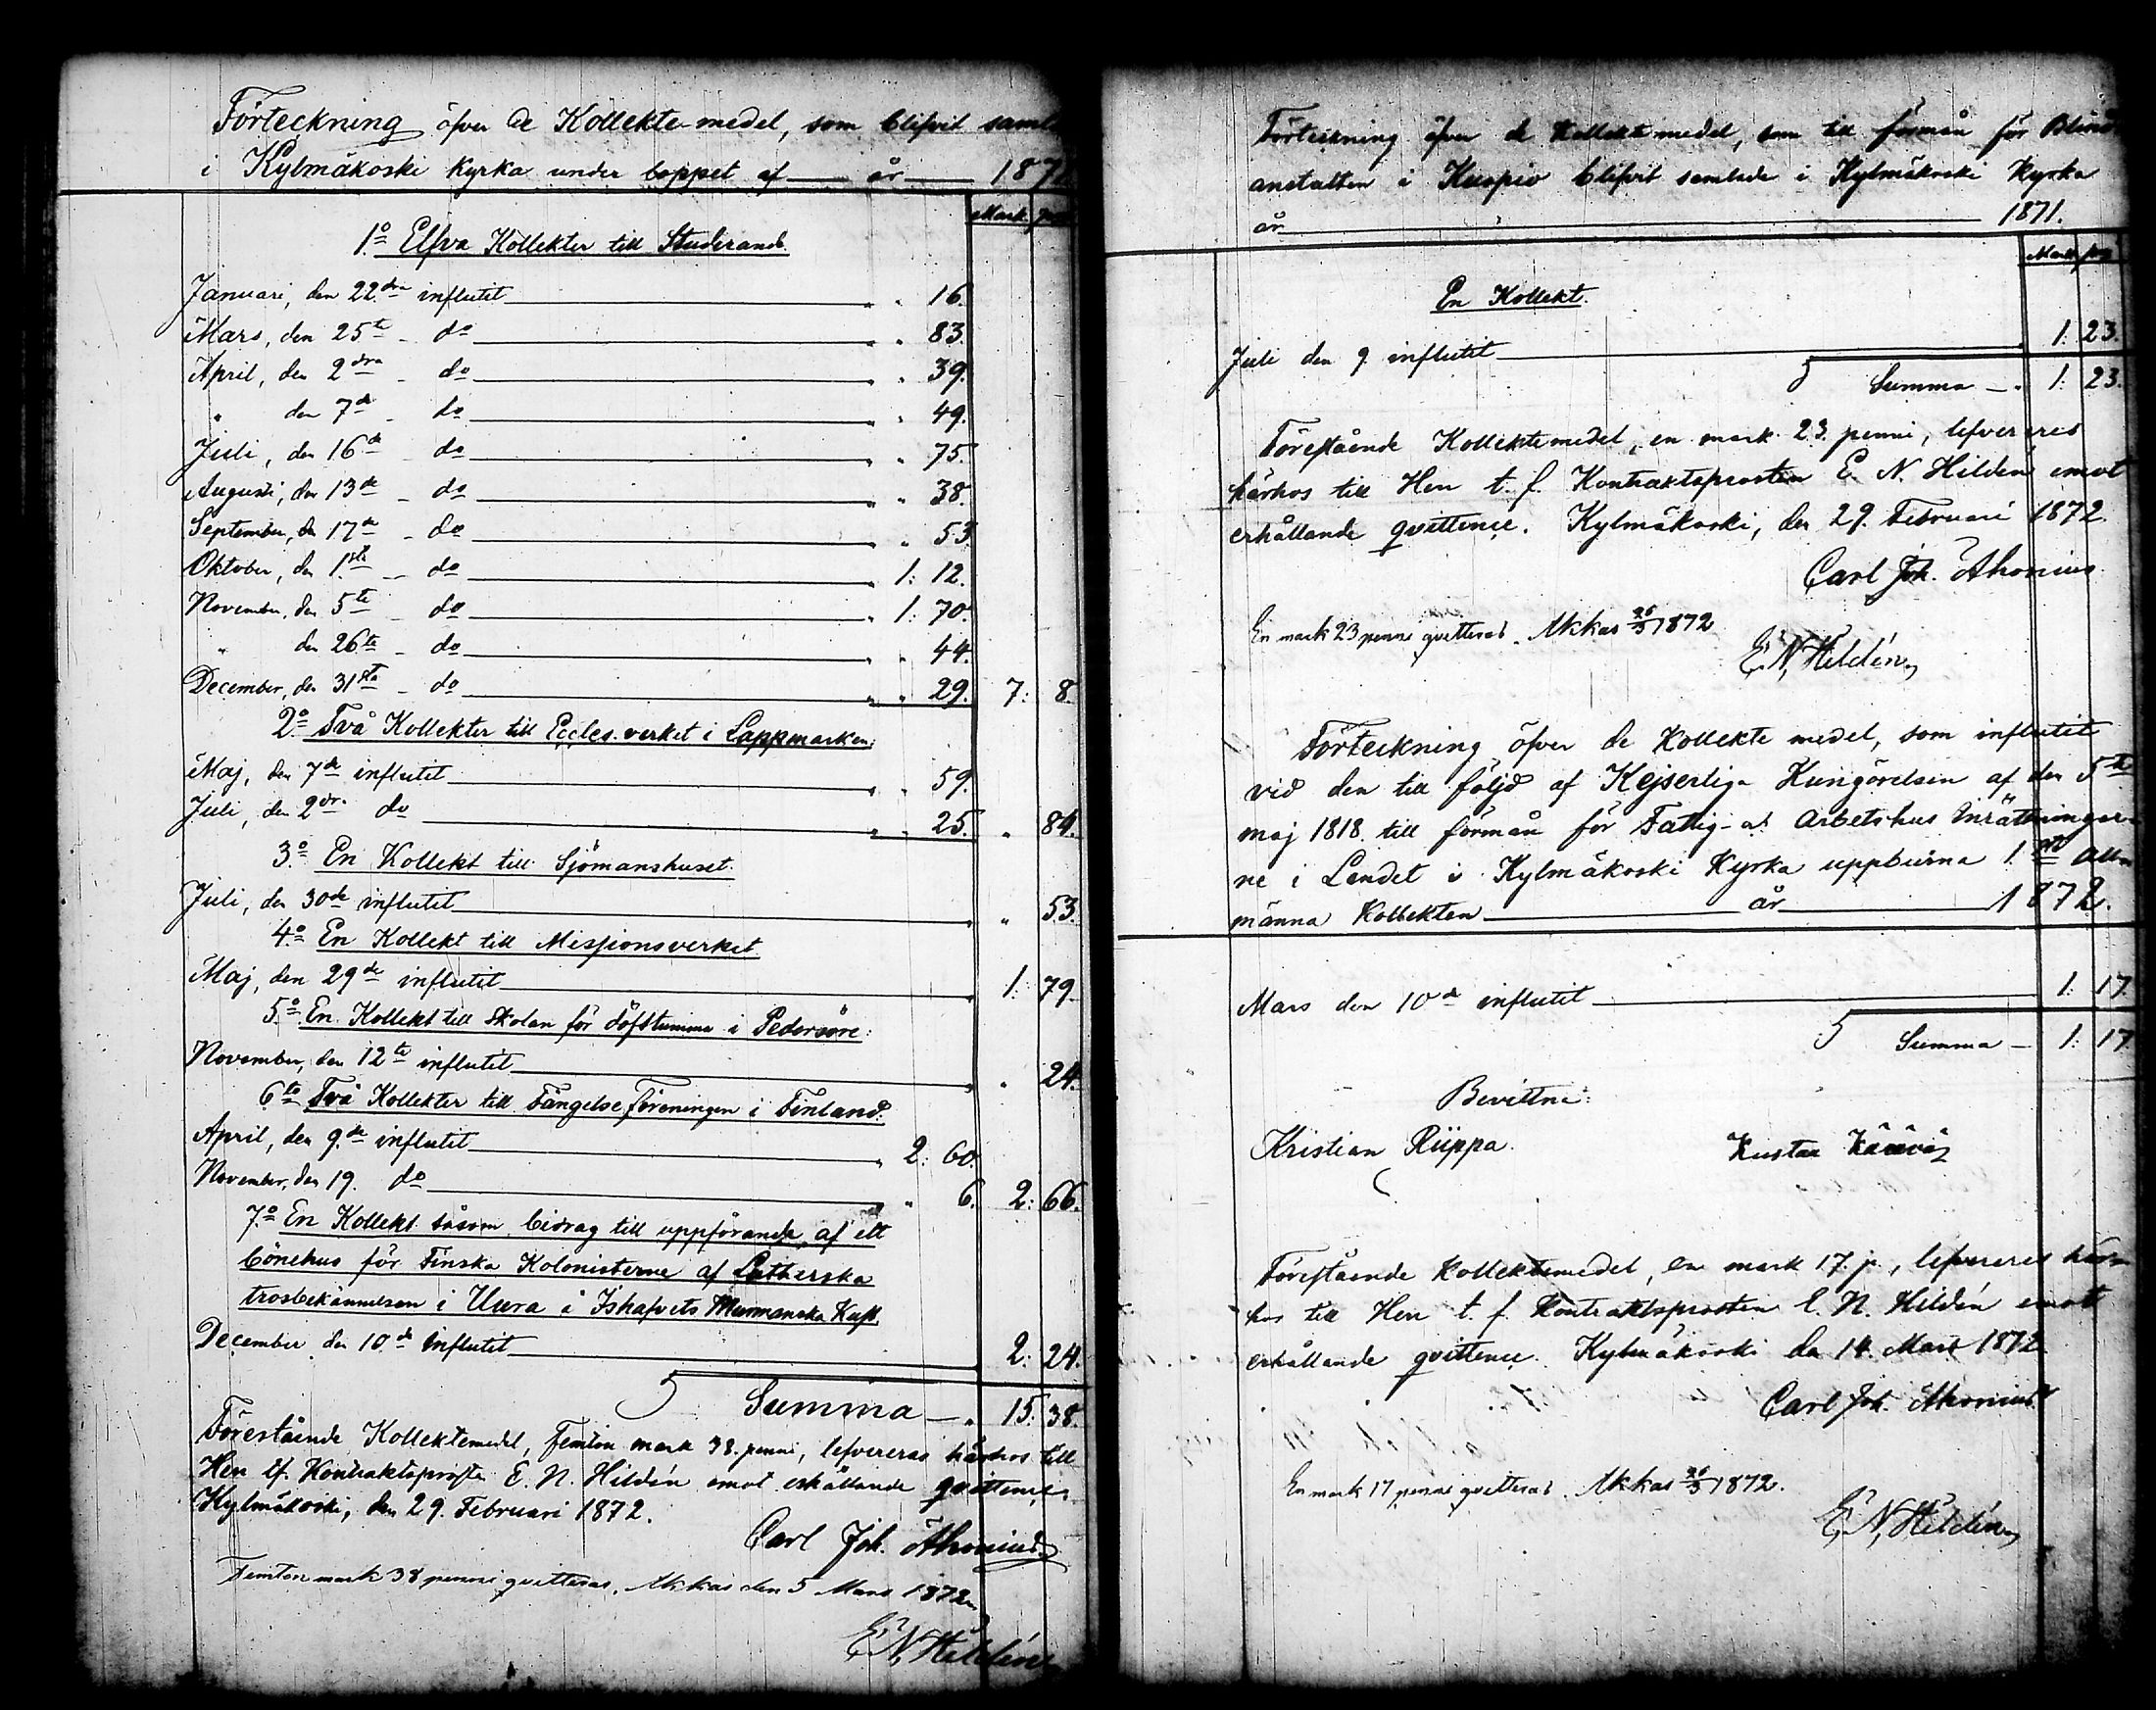 Förteckning öfver de Kollekte-medel, som blifvit
i Kylmäkoski Kyrka under loppet af år 187
Mark
1:o Elfva Kollekter till Studerande.
Januari, den 22:dra influtit " " 16.
Mars, den 25te - do " " 83.
April, den 2dra - do " " 39.
" den 7de - do " " 49.
Juli, den 16de do " " 75.
Augusti, den 13de - do " " 38.
September, den 17de - do " " 53.
Oktober, den 1sta - do " 1: 12.
November, den 5te - do " 1: 70.
" den 26te - do " " 44.
December, den 31sta - do " " 29. 7: 8.
2:o Två Kollekter till Eccles. verket i Lappmarken:
Maj, den 7de influtit " " 59.
Juli, den 2dra do " " 25. " 84.
3:o En Kollekt till Sjömanshuset.
Juli, den 30de influtit " " 53.
4:o En Kollekt till Missionsverket.
Maj, den 29de influtit " 1: 79.
5:o En Kollekt till skolan för döfstumma i Pedersöre:
November, den 12te influtit " " 24.
6to Två Kollekter till Fängelse föreningen i Finland.
April, den 9:de influtit " 2: 60.
November, den 19. do " 6. 2: 66.
7:o En Kollekt såsom bidrag till uppförande af ett
bönehus för Finska Kolonisterne af Lutherska
trosbekännelsen i Uura i Ishafvets Murmanska Kust.
December den 10de influtit 2: 24.
Summa — " 15: 38.
Förestående Kollektemedel, femton mark 38. penni, lefvereras härhos till
Herr tf. Kontraktsprosten E. N. Hildén emot erhållande qvittence.
Kylmäkoski, den 29. Februari 1872.
Carl Joh. Ahonius
Femton mark 38 penni qvitteras, Akkas den 5 Mars 1872.
E. N. Hildén
Förteckning öfver de Kollektemedel, som till förmån för Blind-
anstalten i Kuopio blifvit samlade i Kylmäkoski Kyrka
år 1871.
Mark
En Kollekt.
Juli den 9. influtit 1: 23.
Summa — " 1: 23.
Förestående Kollektemedel, en mark 23. penni, lefvereres
härhos till Herr t. f. Kontraktsprosten E. N. Hildén emot
erhållande qvittence. Kylmäkoski, den 29. Februari 1872.
Carl Joh. Ahonius
En mark 23 penni qvitteras. Akkas 26/3 1872
E. N. Hildén
Förteckning öfver de Kollekte medel, som influtit
vid den till följd af Kejserliga Kungörelsen af den 5te
maj 1818 till förmån för Fattig- och Arbetshus Inrättningar-
ne i Landet i Kylmäkoski Kyrka uppburna 1sta Allm
männa Kollekten år 1872.
Mars den 10de influtit 1: 17.
Summa — 1: 17.
Bevittna:
Kristian Riippa. Kustaa
Förestående Kollektemedel, en mark 17. p., lefvereres här-
hos till Herr t. f. Kontraktsprosten E. N. Hildén emot
erhållande qvittence. Kylmäkoski den 14. Mars 1872
Carl Joh. Ahonius
En mark 17 penni qvitteras. Akkas 26/3 1872.
E. N. Hildén